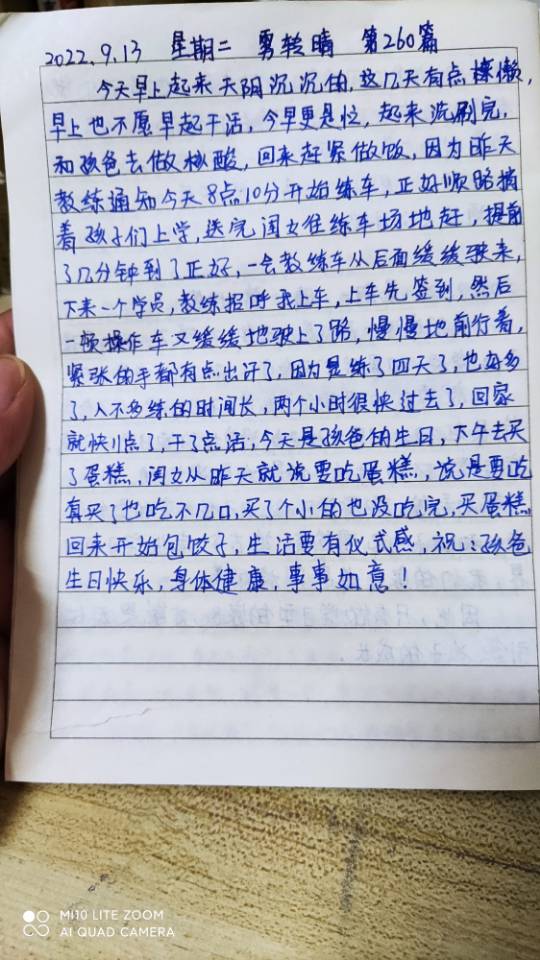 2022.9.13 星期二 雾转晴 第260篇
今天早上起来天阴沉沉的,这几天有点懒,
早上也不愿早起干活,今早更是忙,起来洗刷完,
和孩爸去做核酸,回来赶紧做饭,因为昨天
教练通知今天8点10分开始练车,正好顺路捎
着孩子们上学,送完闺女往练车场地赶,提前
了几分钟到了正好,一会教练车从后面缓缓驶来,
下来一个学员,教练招呼我上车,上车先签到,然后
一顿操作车又缓缓地驶上了路,慢慢地前行着,
紧张的手都有点出汗了,因为是练了四天了,也好多
了,人不多练的时间长,两个小时很快过去了,回家
就快11点了,干了点活,今天是孩爸的生日,下午去买
了蛋糕,闺女从昨天就说要吃蛋糕,说是要吃
真买了也吃不几口,买了个小的也没吃完,买蛋糕
回来开始包饺子,生活要有仪式感,祝:孩爸
生日快乐,身体健康,事事如意!
MI 10 LITE ZOOM
AI QUAD CAMERA